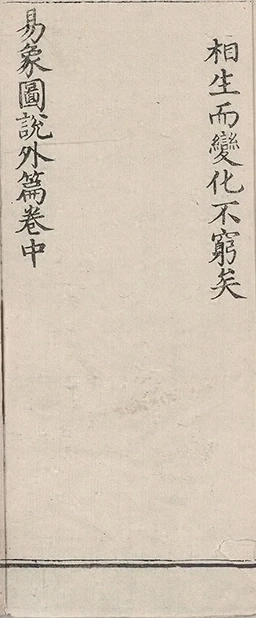 相生而變化不窮矣
易象圖說外篇卷中